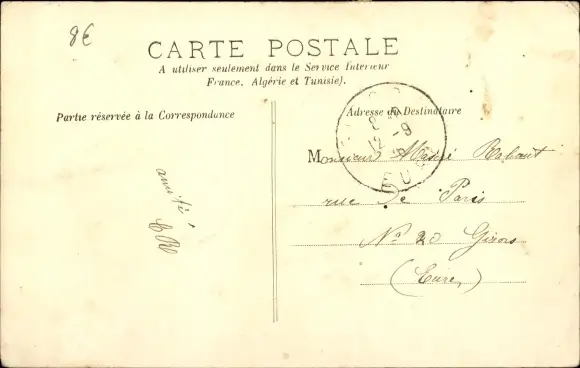 8€
CARTE POSTALE
A utiliser seulement dans le Service Intérieur
France, Algérie et Tunisie).
Partie réservée à la Correspondance
Adresse du Destinataire
Monsieur Rabaut
rue de Paris
N° 20 Gisors
(Eure)
amitié